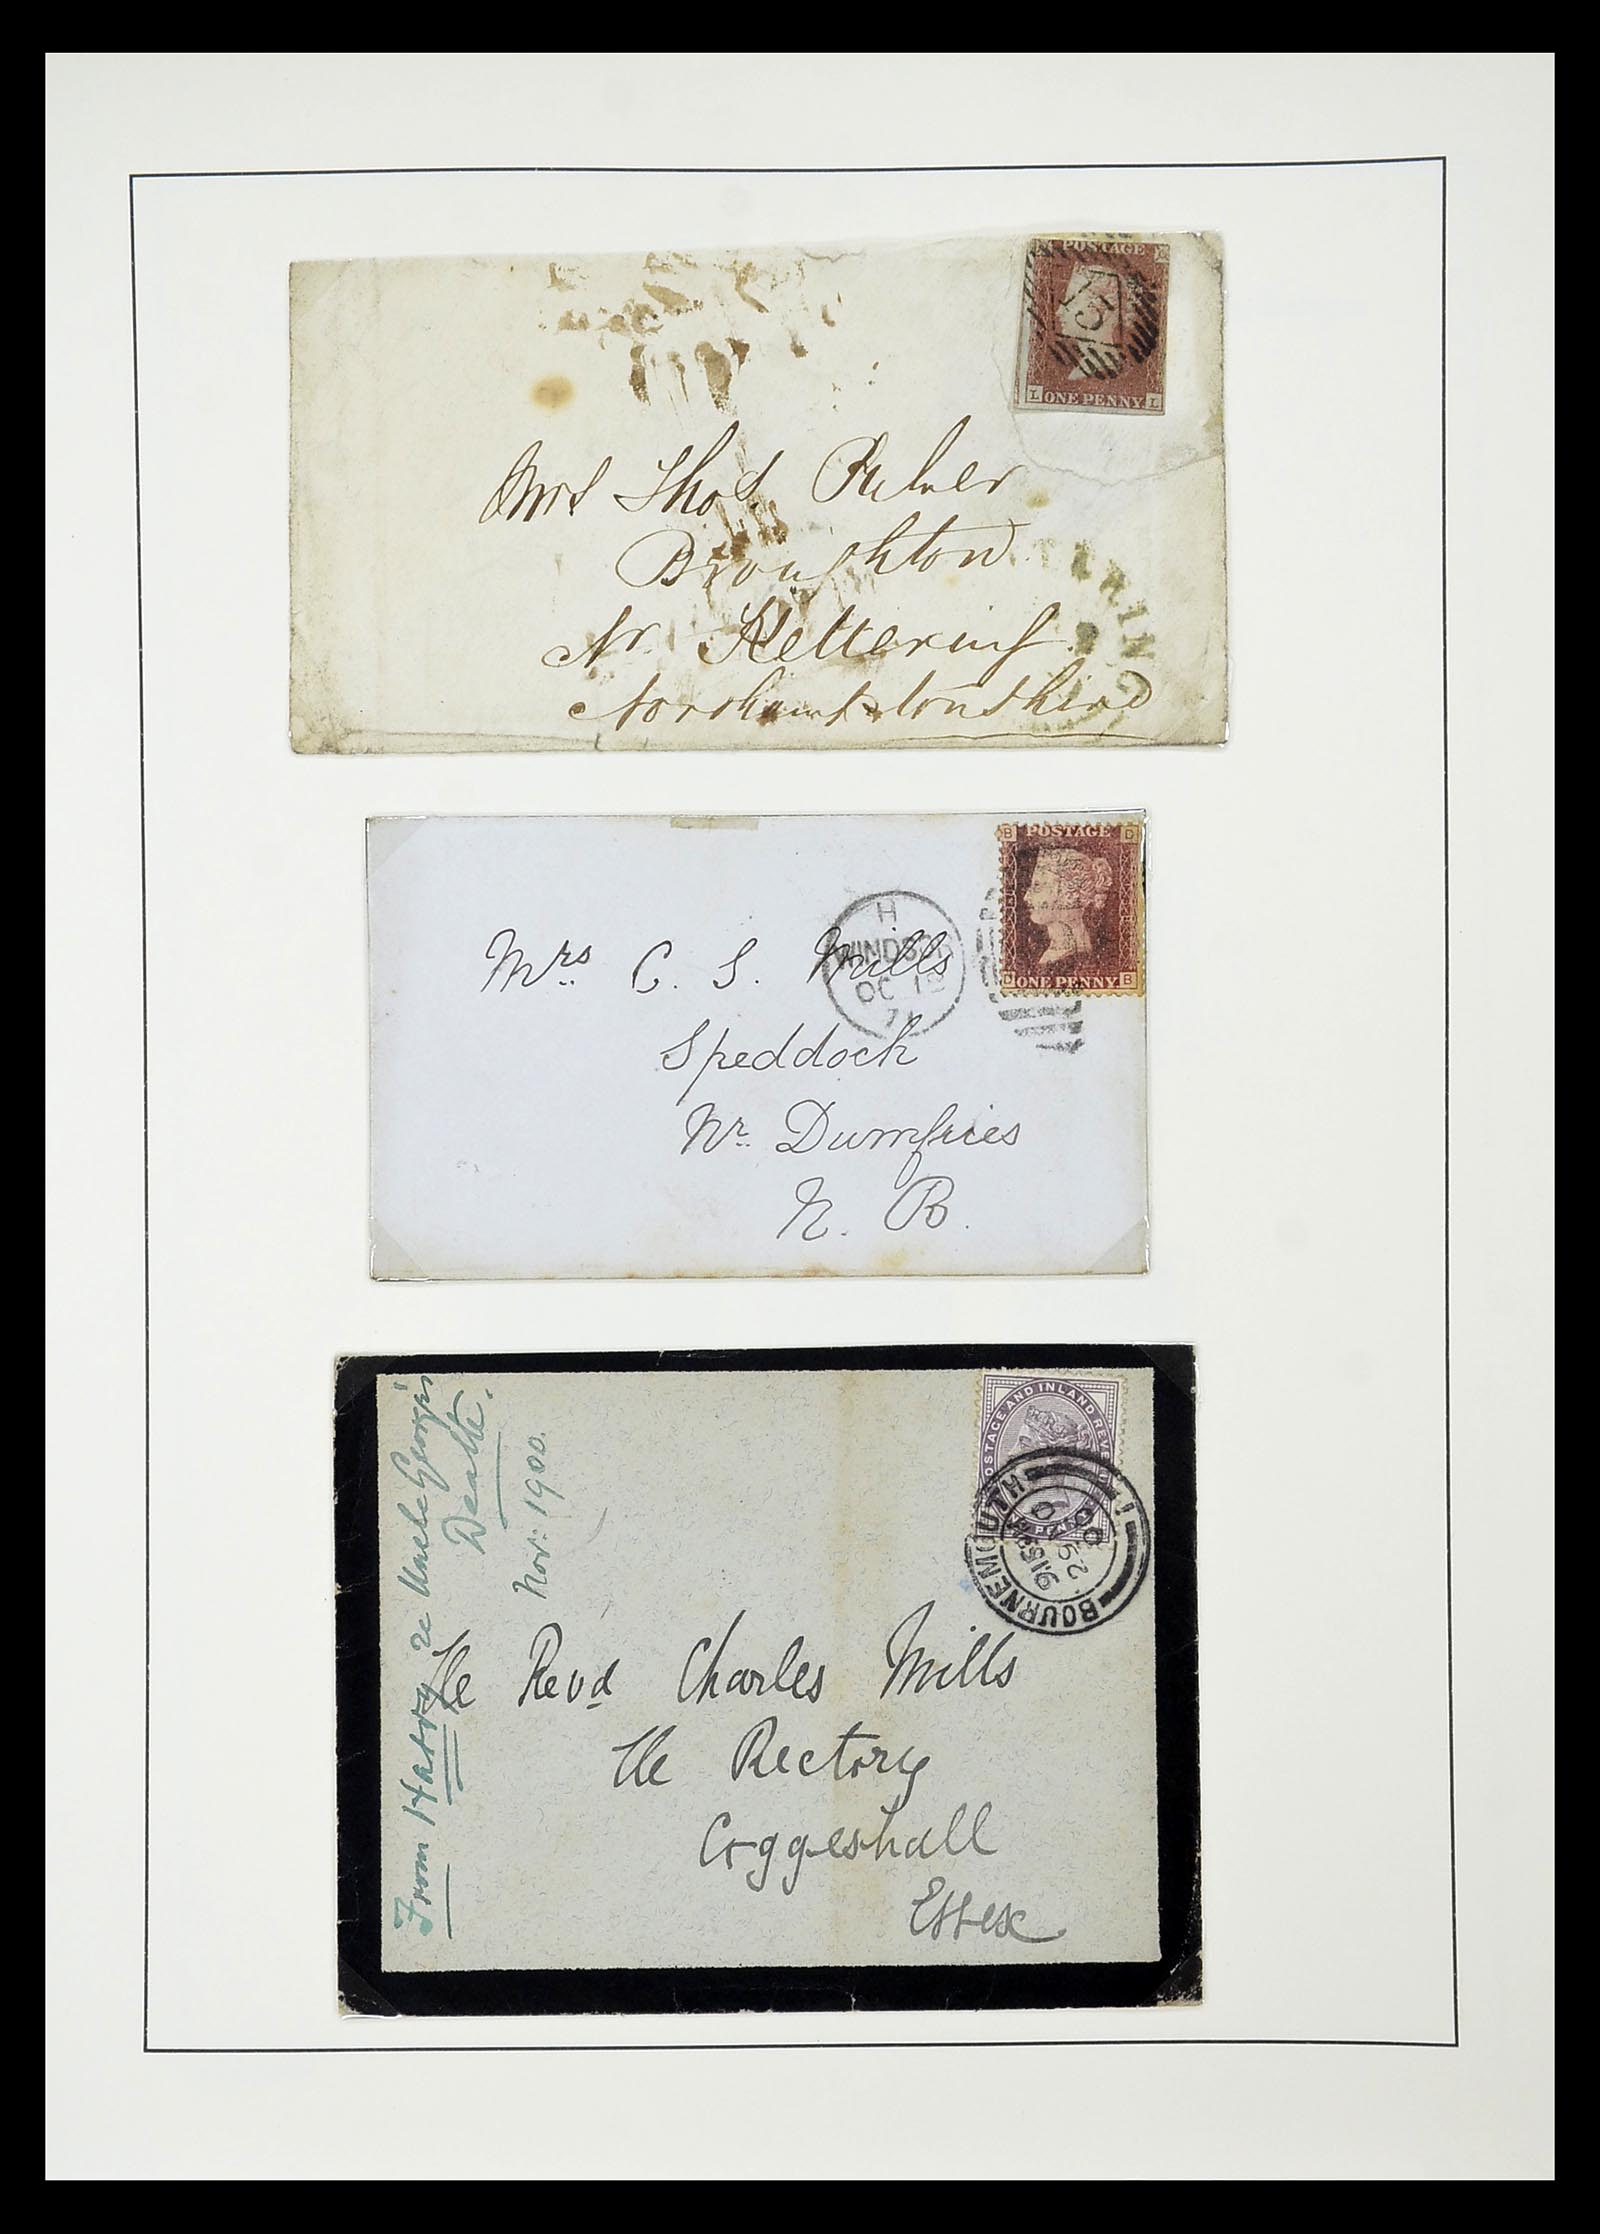 POSTAGE
15
L ONE PENNY L
Mrs Thos. Palmer
Broughton
Nr. Kettering
Northamptonshire
B POSTAGE D
D ONE PENNY B
H
WINDSOR
OC 12
71
Mrs. C. S. Mills
Speddoch
Nr. Dumfries
N. B.
POSTAGE AND INLAND REVE
PENNY
BOURNEMOUTH
1
9 15 AM
NO 29
00
From Harry re Uncle George's
Death.
Nov: 1900.
The Revd Charles Mills
The Rectory
Coggeshall
Essex